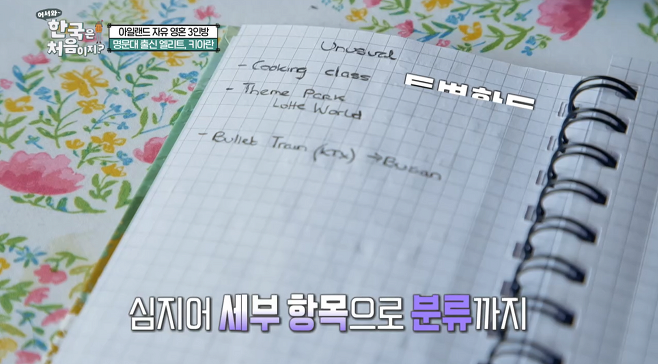 어서와~
한국은
처음이지?
아일랜드 자유 영혼 3인방
명문대 출신 엘리트, 키아란
Unusual
- Cooking class
- Theme Park
Lotte World
- Bullet Train (KTX) → Busan
심지어 세부 항목으로 분류까지